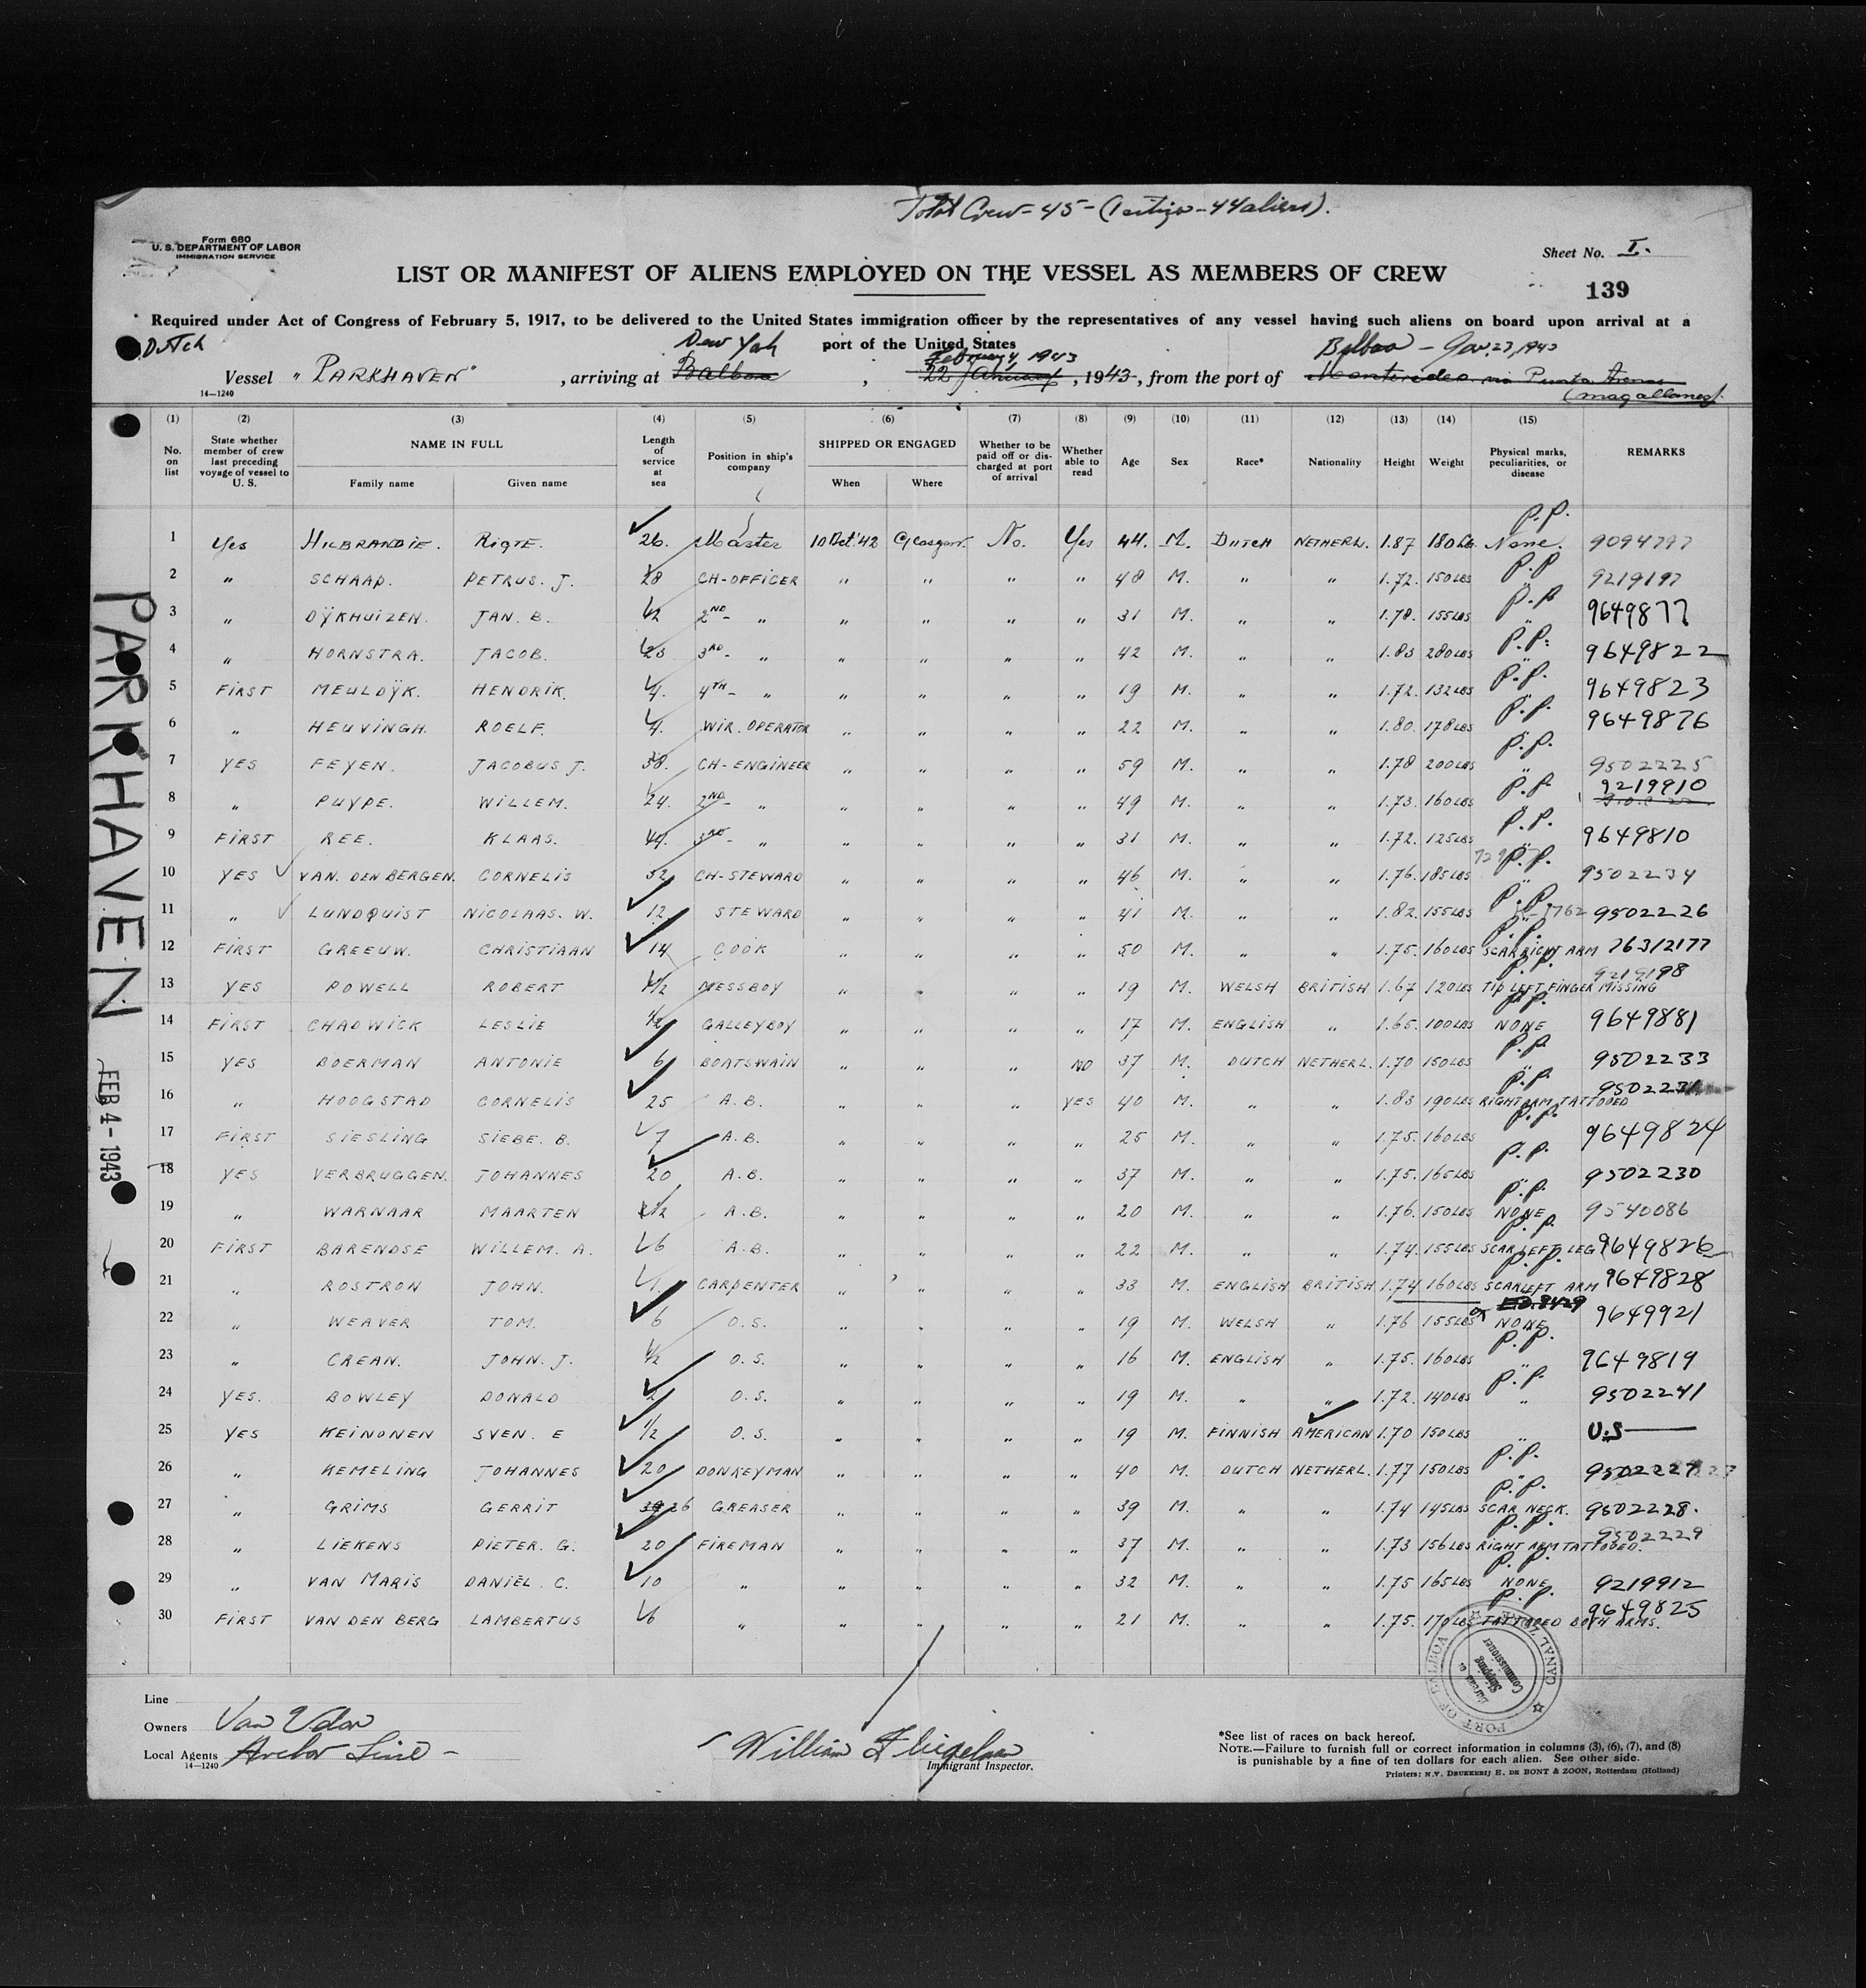 Total Crew - 45 - (1 citizn - 44 aliens).
Form 680
U. S. DEPARTMENT OF LABOR
IMMIGRATION SERVICE
Sheet No. I.
LIST OR MANIFEST OF ALIENS EMPLOYED ON THE VESSEL AS MEMBERS OF CREW
139
Required under Act of Congress of February 5, 1917, to be delivered to the United States immigration officer by the representatives of any vessel having such aliens on board upon arrival at a
port of the United States
Dutch New York February 4, 1943 Balboa - Jan. 23, 1943
Vessel "PARKHAVEN", arriving at Balboa, 22 January, 1943, from the port of Montevideo via Punta Arenas
(Magallanes).
14—1240
(1) (2) (3) (4) (5) (6) (7) (8) (9) (10) (11) (12) (13) (14) (15)
No. on list State whether member of crew last preceding voyage of vessel to U. S. NAME IN FULL Length of service at sea Position in ship's company SHIPPED OR ENGAGED Whether to be paid off or discharged at port of arrival Whether able to read Age Sex Race* Nationality Height Weight Physical marks, peculiarities, or disease REMARKS
Family name Given name When Where
1 Yes HILBRANDIE. RIGTE. 26. Master 10 Oct. '42 Glasgow. No. Yes 44. M. DUTCH NETHERL. 1.87 180 Lb. P.P. None.
2 " SCHAAP. PETRUS. J. 28 CH-OFFICER " " " " 48 M. " " 1.72. 150 LBS P.P 9219197
3 " DŸKHUIZEN. JAN. B. 2ND - " " " " " 31 M. " " 1.78. 155 LBS P.P 9649877
4 " HORNSTRA. JACOB. 23 3RD - " " " " " 42 M. " " 1.83 280 LBS P.P. 9649822
5 FIRST MEULDŸK. HENDRIK. 4. 4TH - " " " " " 19 M. " " 1.72. 132 LBS P.P. 9649823
6 " HEUVINGH. ROELF. 4. WIR. OPERATOR " " " " 22 M. " " 1.80. 178 LBS P.P. 9649876
7 YES FEYEN. JACOBUS J. 38. CH-ENGINEER " " " " 59 M. " " 1.78 200 LBS P.P. 9502225
8 " PUYPE. WILLEM. 24. 2ND - " " " " " 49 M. " " 1.73. 160 LBS P.P. 9219910
9 FIRST REE. KLAAS. 3RD - " " " " " 31 M. " " 1.72. 125 LBS P.P. 9649810
10 YES VAN. DEN BERGEN. CORNELIS 32 CH-STEWARD " " " " 46 M. " " 1.76. 185 LBS P.P. 9502234
11 " LUNDQUIST NICOLAAS. W. 12. STEWARD " " " " 41 M. " " 1.82. 155 LBS P.P. 9502226
12 FIRST GREEUW. CHRISTIAAN 14 COOK " " " " 50 M. " " 1.75. 160 LBS P.P. SCAR RIGHT ARM 76312177
13 YES POWELL ROBERT MESSBOY " " " " 19 M. WELSH BRITISH 1.67 120 LBS P.P. TIP LEFT FINGER MISSING 9219198
14 FIRST CHADWICK LESLIE 1/2 GALLEYBOY " " " " 17 M. ENGLISH " 1.65. 100 LBS P.P. NONE 9649881
15 YES BOERMAN ANTONIE 6 BOATSWAIN " " " NO 37 M. DUTCH NETHERL. 1.70 150 LBS P.P. " 9502233
16 " HOOGSTAD CORNELIS 25 A.B. " " " YES 40 M. " " 1.83 190 LBS P.P. RIGHT ARM TATTOOED 9502231
17 FIRST SIESLING SIEBE. B. 7 A.B. " " " " 25 M. " " 1.75. 160 LBS P.P. 9649824
18 YES VERBRUGGEN. JOHANNES 20 A.B. " " " " 37 M. " " 1.75. 165 LBS P.P. 9502230
19 " WARNAAR MAARTEN A.B. " " " " 20 M. " " 1.76. 150 LBS P.P. NONE 9540086
20 FIRST BARENDSE WILLEM. A. 6 A.B. " " " " 22 M. " " 1.74. 155 LBS P.P. SCAR LEFT LEG 9649826
21 " ROSTRON JOHN. CARPENTER " " " " 33 M. ENGLISH BRITISH 1.74 160 LBS P.P. SCAR LEFT ARM 9649828
22 " WEAVER TOM. 6 O.S. " " " " 19 M. WELSH " 1.76 155 LBS NONE 9649921
23 " CREAN. JOHN. J. 1/2 O.S. " " " " 16 M. ENGLISH " 1.75. 160 LBS P.P. " 9649819
24 YES. BOWLEY DONALD 2 O.S. " " " " 19 M. " " 1.72. 140 LBS P.P. " 9502241
25 YES KEINONEN SVEN. E 1/2 O.S. " " " " 19 M. FINNISH AMERICAN 1.70 150 LBS " U.S
26 " KEMELING JOHANNES 20 DONKEYMAN " " " " 40 M. DUTCH NETHERL. 1.77 150 LBS P.P. " 9502227
27 " GRIMS GERRIT 39 26 GREASER " " " " 39 M. " " 1.74 145 LBS P.P. SCAR NECK. 9502228.
28 " LIEKENS PIETER. G. 20 FIREMAN " " " " 37 M. " " 1.73 156 LBS P.P. RIGHT ARM TATTOOED. 9502229
29 " VAN MARIS DANIËL. C. 10 " " " " " 32 M. " " 1.75 165 LBS P.P. NONE. 9219912
30 FIRST VAN DEN BERG LAMBERTUS 6 " " " " " 21 M. " " 1.75. 170 LBS P.P. TATTOOED BOTH ARMS. 9649825
PARKHAVEN
FEB 4 - 1943
PORT OF BALBOA CANAL ZONE
Shipping Commissioner
Line
Owners Van Uden
Local Agents Anchor Line -
14—1240
William
Immigrant Inspector.
*See list of races on back hereof.
NOTE.—Failure to furnish full or correct information in columns (3), (6), (7), and (8)
is punishable by a fine of ten dollars for each alien. See other side.
Printers: N.V. DRUKKERIJ E. DE BONT & ZOON, Rotterdam (Holland)